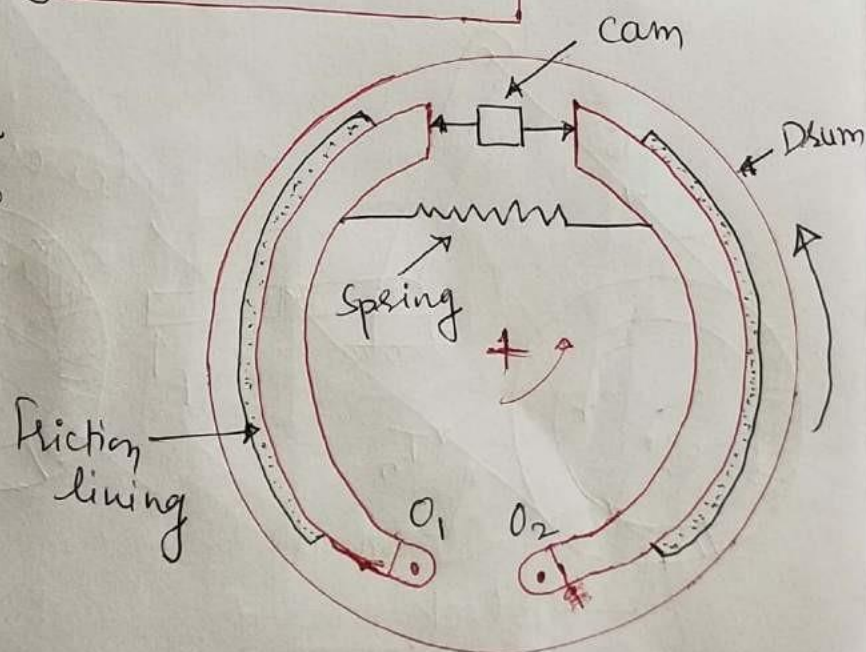 Cam
Drum
Spring
Friction
lining
O1
O2